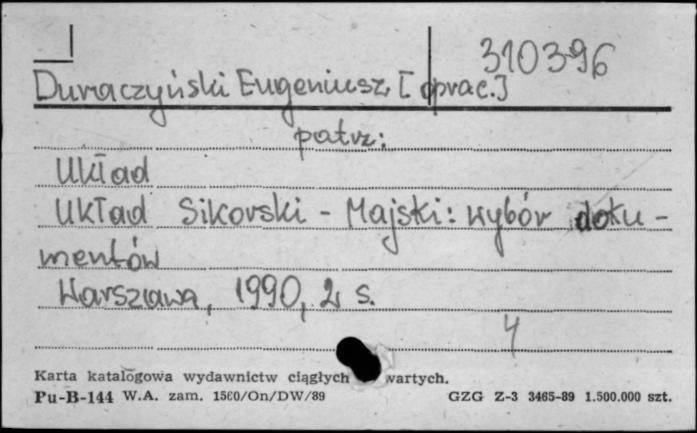 310396
Duraczyński Eugeniusz [oprac.]
patrz:
Układ
Układ Sikorski - Majski: wybór doku-
mentów
Warszawa, 1990, 2 s.
4
Karta katalogowa wydawnictw ciągłych wartych.
Pu-B-144 W.A. zam. 1560/On/DW/89 GZG Z-3 3465-89 1.500.000 szt.